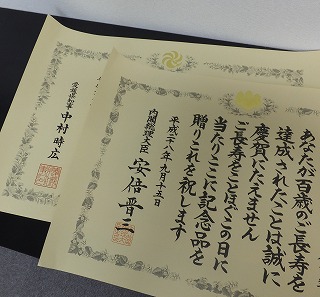 あなたが百歳のご長寿を
達成されたことは誠に
慶賀にたえません
ご長寿をことほぐこの日に
当たりここに記念品を
贈りこれを祝します
平成二十八年九月十五日
内閣総理大臣 安倍晋三
愛媛県知事 中村時広